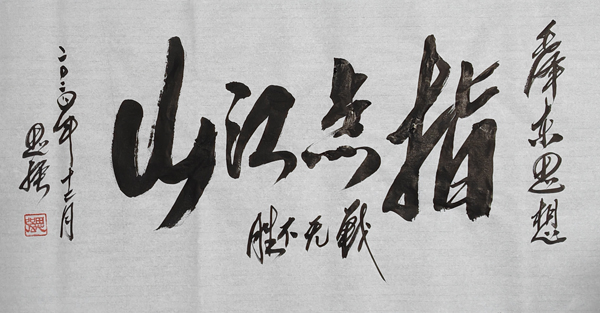 毛泽东思想
指点江山
战无不胜
二〇二四年十二月
思